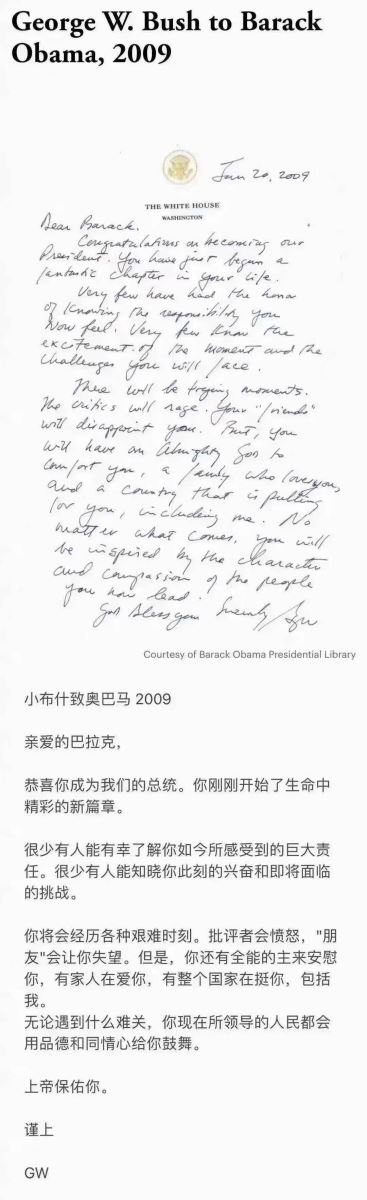 George W. Bush to Barack
Obama, 2009
Jan 20, 2009
THE WHITE HOUSE
WASHINGTON
Dear Barack,
Congratulations on becoming our
President. You have just begun a
fantastic chapter in your life.
Very few have had the honor
of knowing the responsibility you
now feel. Very few know the
excitement of the moment and the
challenges you will face.
There will be trying moments.
The critics will rage. Your "friends"
will disappoint you. But, you
will have an Almighty God to
comfort you, a family who loves you,
and a country that is pulling
for you, including me. No
matter what comes, you will
be inspired by the character
and compassion of the people
you now lead.
God bless you
Sincerely, GW
Courtesy of Barack Obama Presidential Library
小布什致奥巴马 2009
亲爱的巴拉克，
恭喜你成为我们的总统。你刚刚开始了生命中
精彩的新篇章。
很少有人能有幸了解你如今所感受到的巨大责
任。很少有人能知晓你此刻的兴奋和即将面临
的挑战。
你将会经历各种艰难时刻。批评者会愤怒，"朋
友"会让你失望。但是，你还有全能的主来安慰
你，有家人在爱你，有整个国家在挺你，包括
我。
无论遇到什么难关，你现在所领导的人民都会
用品德和同情心给你鼓舞。
上帝保佑你。
谨上
GW